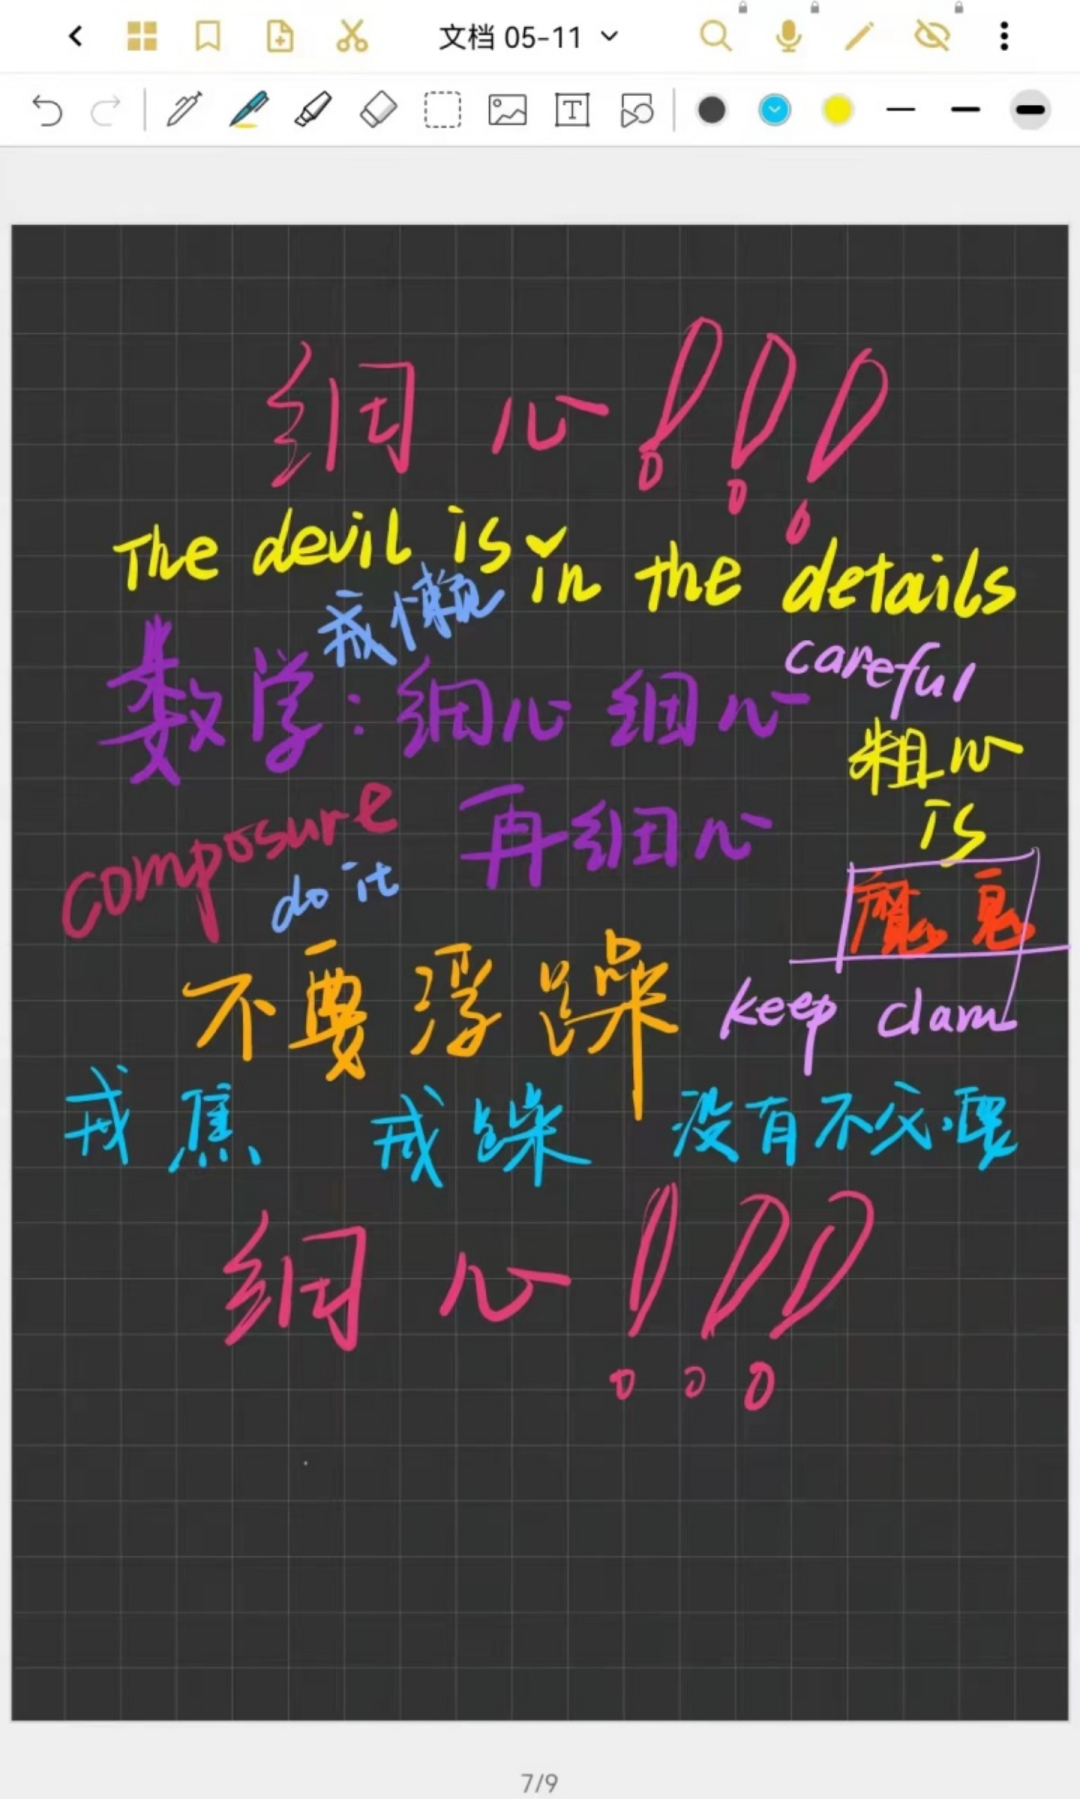 文档 05-11
细心!!!
The devil is in the details
戒懒
careful
数学:细心 细心
粗心
is
魔鬼
composure
再细心
do it
不要浮躁
keep clam
戒焦 戒躁 没有不必要
细心!!!
7/9